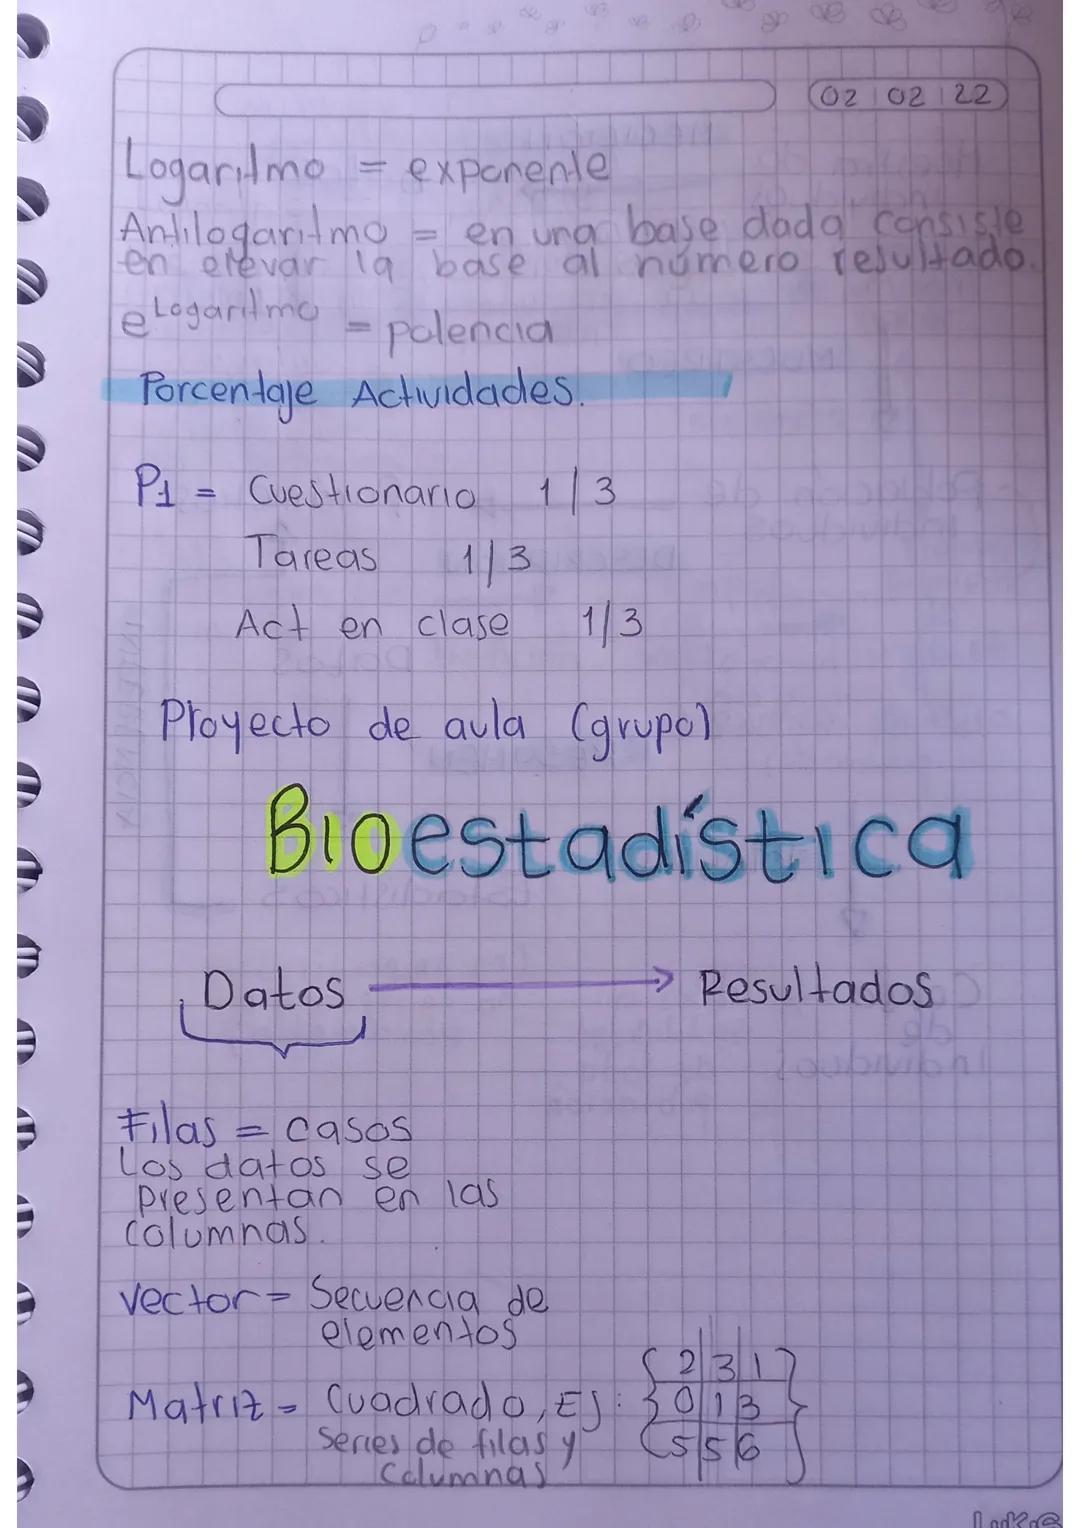 02 02 22
Logaritmo = exponente
Antilogaritmo = en una base dada consiste
en elevar la base al número resultado.
e^Logaritmo = potencia
Porcentaje Actividades.
P1 = Cuestionario 1/3
Tareas 1/3
Act en clase 1/3
Proyecto de aula (grupo)
Bioestadística
Datos → Resultados
Filas = casos
Los datos se
presentan en las
columnas.
Vector = Secuencia de
elementos
Matriz = Cuadrado, EJ:
series de filas y
columnas
2 3 1
0 1 3
5 5 6